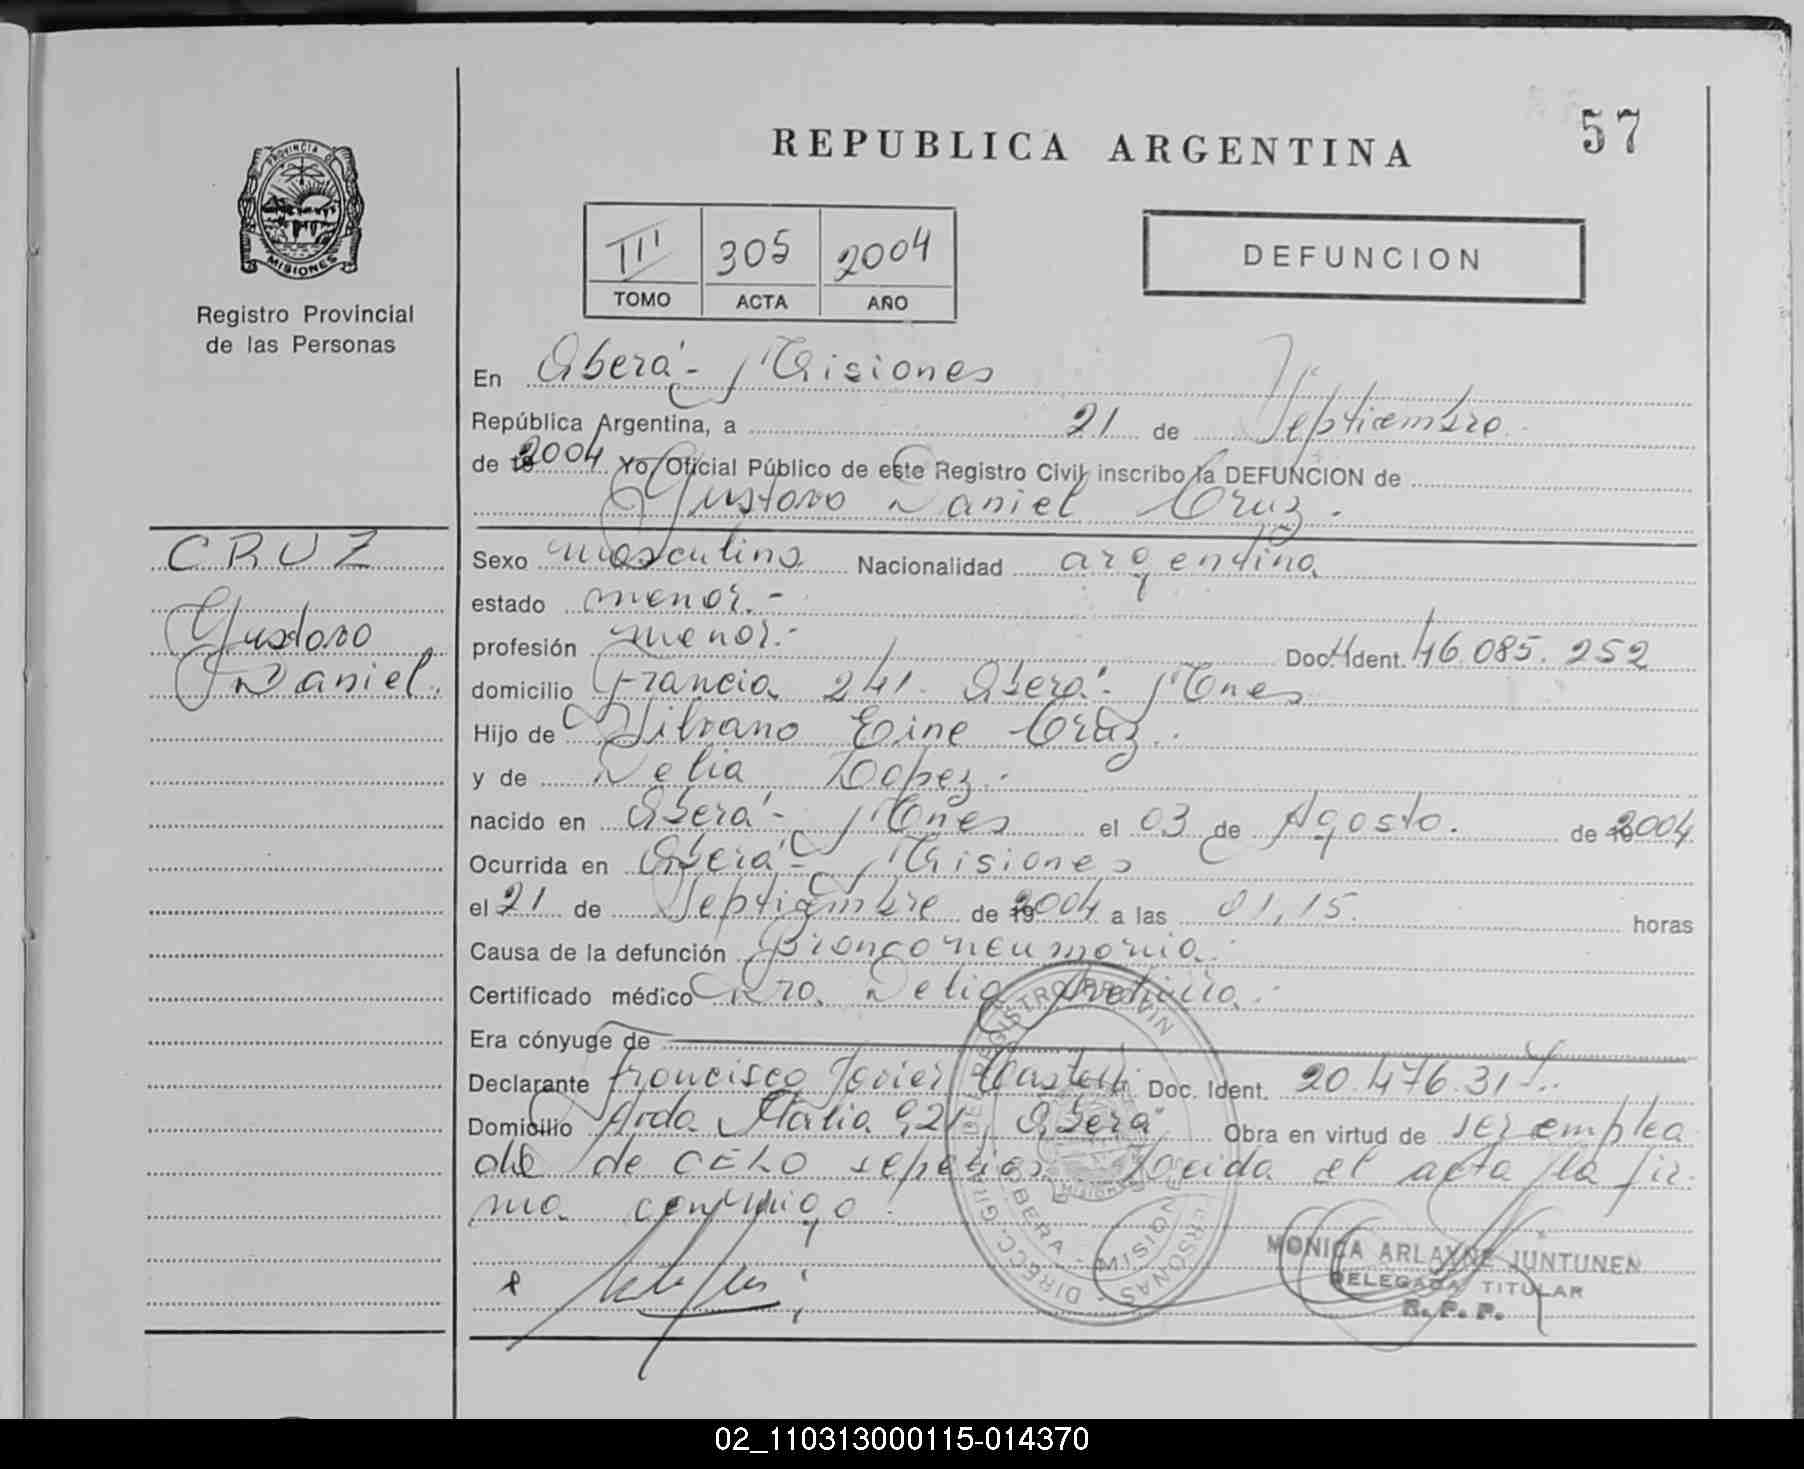 57
REPUBLICA ARGENTINA
PROVINCIA DE
MISIONES
Registro Provincial
de las Personas
III 305 2004
TOMO ACTA AÑO
DEFUNCION
En Oberá - Misiones
República Argentina, a 21 de Septiembre
de 19 2004 Yo, Oficial Público de este Registro Civil inscribo la DEFUNCION de
Gustavo Daniel Cruz.
CRUZ
Gustavo
Daniel.
Sexo masculino Nacionalidad argentina
estado menor.-
profesión menor.- Doc. Ident. 46.085.252
domicilio Francia 241. Oberá - Mnes
Hijo de Silvano Cruz.
y de Delia Lopez.
nacido en Oberá - Mnes el 03 de Agosto. de 19 2004
Ocurrida en Oberá - Misiones
el 21 de Septiembre de 19 2004 a las 01,15. horas
Causa de la defunción Bronconeumonia.
Certificado médico Dra. Delia
Era cónyuge de
Declarante Francisco Javier Doc. Ident. 20.476.31
Domicilio Avda Italia 921, Oberá Obra en virtud de ser emplea
do de CELO sepelios Leída el acta la fir-
ma conmigo.
MONICA ARLAYNE JUNTUNEN
DELEGADA TITULAR
R. P. P.
02_110313000115-014370